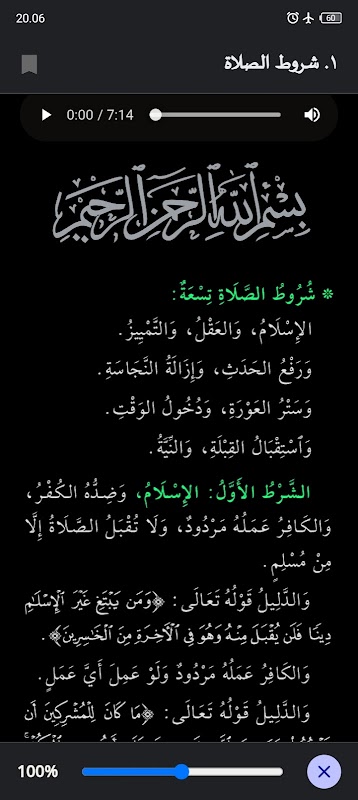 20.06
60
١. شروط الصلاة
0:00 / 7:14
بِسْمِ ٱللَّهِ ٱلرَّحْمَٰنِ ٱلرَّحِيمِ
* شُرُوطُ الصَّلَاةِ تِسْعَةٌ:
الإِسْلَامُ، وَالعَقْلُ، وَالتَّمْيِيزُ.
وَرَفْعُ الحَدَثِ، وَإِزَالَةُ النَّجَاسَةِ.
وَسَتْرُ العَوْرَةِ، وَدُخُولُ الوَقْتِ.
وَٱسْتِقْبَالُ القِبْلَةِ، وَالنِّيَّةُ.
الشَّرْطُ الأَوَّلُ: الإِسْلَامُ، وَضِدُّهُ الكُفْرُ،
وَالكَافِرُ عَمَلُهُ مَرْدُودٌ، وَلَا تُقْبَلُ الصَّلَاةُ إِلَّا
مِنْ مُسْلِمٍ.
وَالدَّلِيلُ قَوْلُهُ تَعَالَى: ﴿وَمَن يَبْتَغِ غَيْرَ ٱلْإِسْلَٰمِ
دِينًا فَلَن يُقْبَلَ مِنْهُ وَهُوَ فِى ٱلْأَخِرَةِ مِنَ ٱلْخَٰسِرِينَ﴾.
وَالكَافِرُ عَمَلُهُ مَرْدُودٌ وَلَوْ عَمِلَ أَيَّ عَمَلٍ.
وَالدَّلِيلُ قَوْلُهُ تَعَالَى: ﴿مَا كَانَ لِلْمُشْرِكِينَ أَن
100%